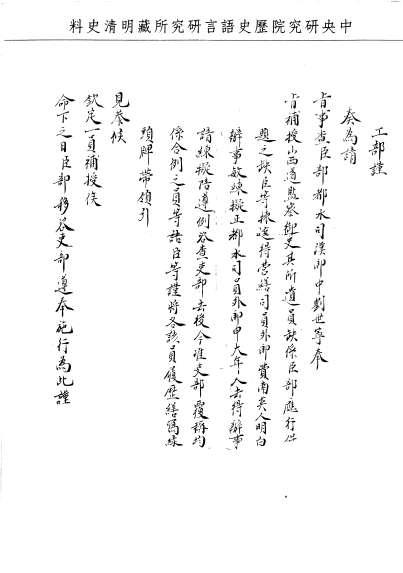 中央研究院歷史語言研究所藏明清史料
工部謹
奏為請
旨事查臣部都水司漢郎中劉世寧奉
旨補授山西道監察御史其所遺員缺係臣部應行
題之缺臣等揀選得營繕司員外郎費南英人明白
辦事敏練擬正都水司員外郎申大年人去得辦事
諳練擬陪遵例咨查吏部去後今准吏部覆稱均
係合例之員等語臣等謹將各該員履歷繕寫綠
頭牌帶領引
見恭候
欽定一員補授俟
命下之日臣部移咨吏部遵奉施行為此謹